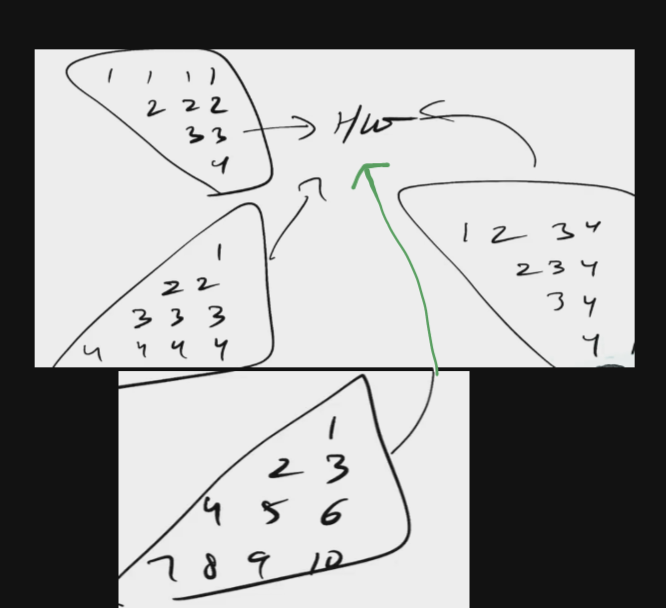 1 1 1 1
2 2 2
3 3
4
H/W
1
2 2
3 3 3
4 4 4 4
1 2 3 4
2 3 4
3 4
4
1
2 3
4 5 6
7 8 9 10